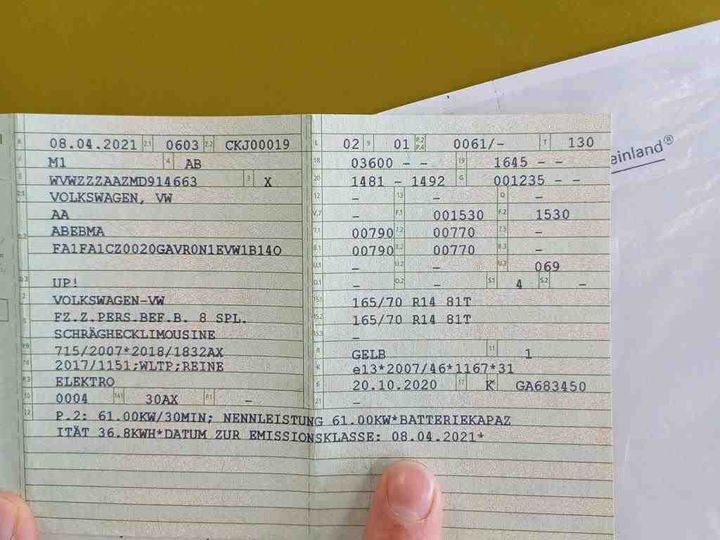 08.04.2021 2.1 0603 2.2 CKJ00019
M1 4 AB
WVWZZZAAZMD914663 3 X
VOLKSWAGEN, VW
AA
ABEBMA
FA1FA1CZ0020GAVR0N1EVW1B14O
UP!
VOLKSWAGEN-VW
FZ.Z.PERS.BEF.B. 8 SPL.
SCHRÄGHECKLIMOUSINE
715/2007*2018/1832AX
2017/1151;WLTP;REINE
ELEKTRO
10 0004 14.1 30AX P.1 -
L 02 9 01 P.2 P.4 0061/- T 130
18 03600 - - 19 1645 - -
20 1481 - 1492 G 001235 - -
12 - 13 - Q -
V.7 - F.1 001530 F.2 1530
7.1 00790 7.2 00770 7.3 -
8.1 00790 8.2 00770 8.3 -
U.1 - U.2 - U.3 069
O.1 - O.2 - S.1 4 S.2 -
15.1 165/70 R14 81T
15.2 165/70 R14 81T
15.3 -
R GELB 11 1
K e13*2007/46*1167*31
6 20.10.2020 17 K 16 GA683450
21 -
22 P.2: 61.00KW/30MIN; NENNLEISTUNG 61.00KW*BATTERIEKAPAZ
ITÄT 36.8KWH*DATUM ZUR EMISSIONSKLASSE: 08.04.2021*
einland®